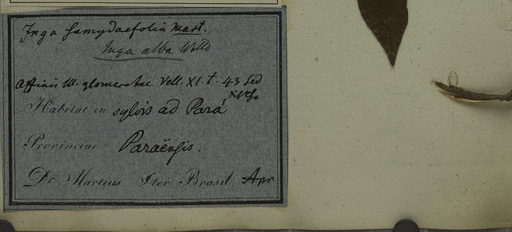 Inga samydaefolia Mart.
Inga alba Willd
Affinis M. glomeratae Vell. XI. t. 43 sed
differt
Habitat in sylvis ad Pará
Provinciae Paraënsis.
Dr Martius Iter Brasil. Apr